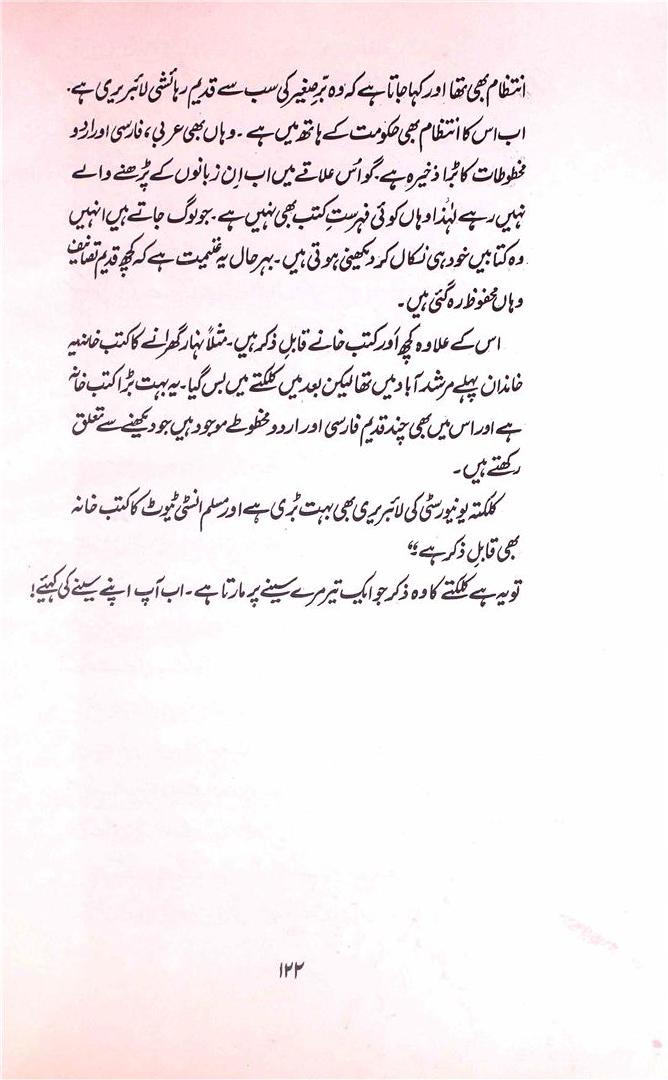 انتظام بھی تھا اور کہا جاتا ہے کہ وہ برِّصغیر کی سب سے قدیم رہائشی لائبریری ہے۔
اب اس کا انتظام بھی حکومت کے ہاتھ میں ہے۔ وہاں بھی عربی، فارسی اور اردو
مخطوطات کا بڑا ذخیرہ ہے۔ گو اُس علاقے میں اب اِن زبانوں کے پڑھنے والے
نہیں رہے لہٰذا وہاں کوئی فہرستِ کتب بھی نہیں ہے۔ جو لوگ جاتے ہیں انہیں
وہ کتابیں خود ہی نکال کر دیکھنی ہوتی ہیں۔ بہرحال یہ غنیمت ہے کہ کچھ قدیم تصانیف
وہاں محفوظ رہ گئی ہیں۔
اس کے علاوہ کچھ اَور کتب خانے قابلِ ذکر ہیں۔ مثلاً نہار گھرانے کا کتب خانہ۔ یہ
خاندان پہلے مرشد آباد میں تھا لیکن بعد میں کلکتے میں بس گیا۔ یہ بہت بڑا کتب خانہ
ہے اور اس میں بھی چند قدیم فارسی اور اردو مخطوطے موجود ہیں جو دیکھنے سے تعلق
رکھتے ہیں۔
کلکتہ یونیورسٹی کی لائبریری بھی بہت بڑی ہے اور مسلم انسٹی ٹیوٹ کا کتب خانہ
بھی قابلِ ذکر ہے۔“
تو یہ ہے کلکتے کا وہ ذکر جو ایک تیر مرے سینے پر مارتا ہے۔ اب آپ اپنے سینے کی کہئیے!
۱۲۲